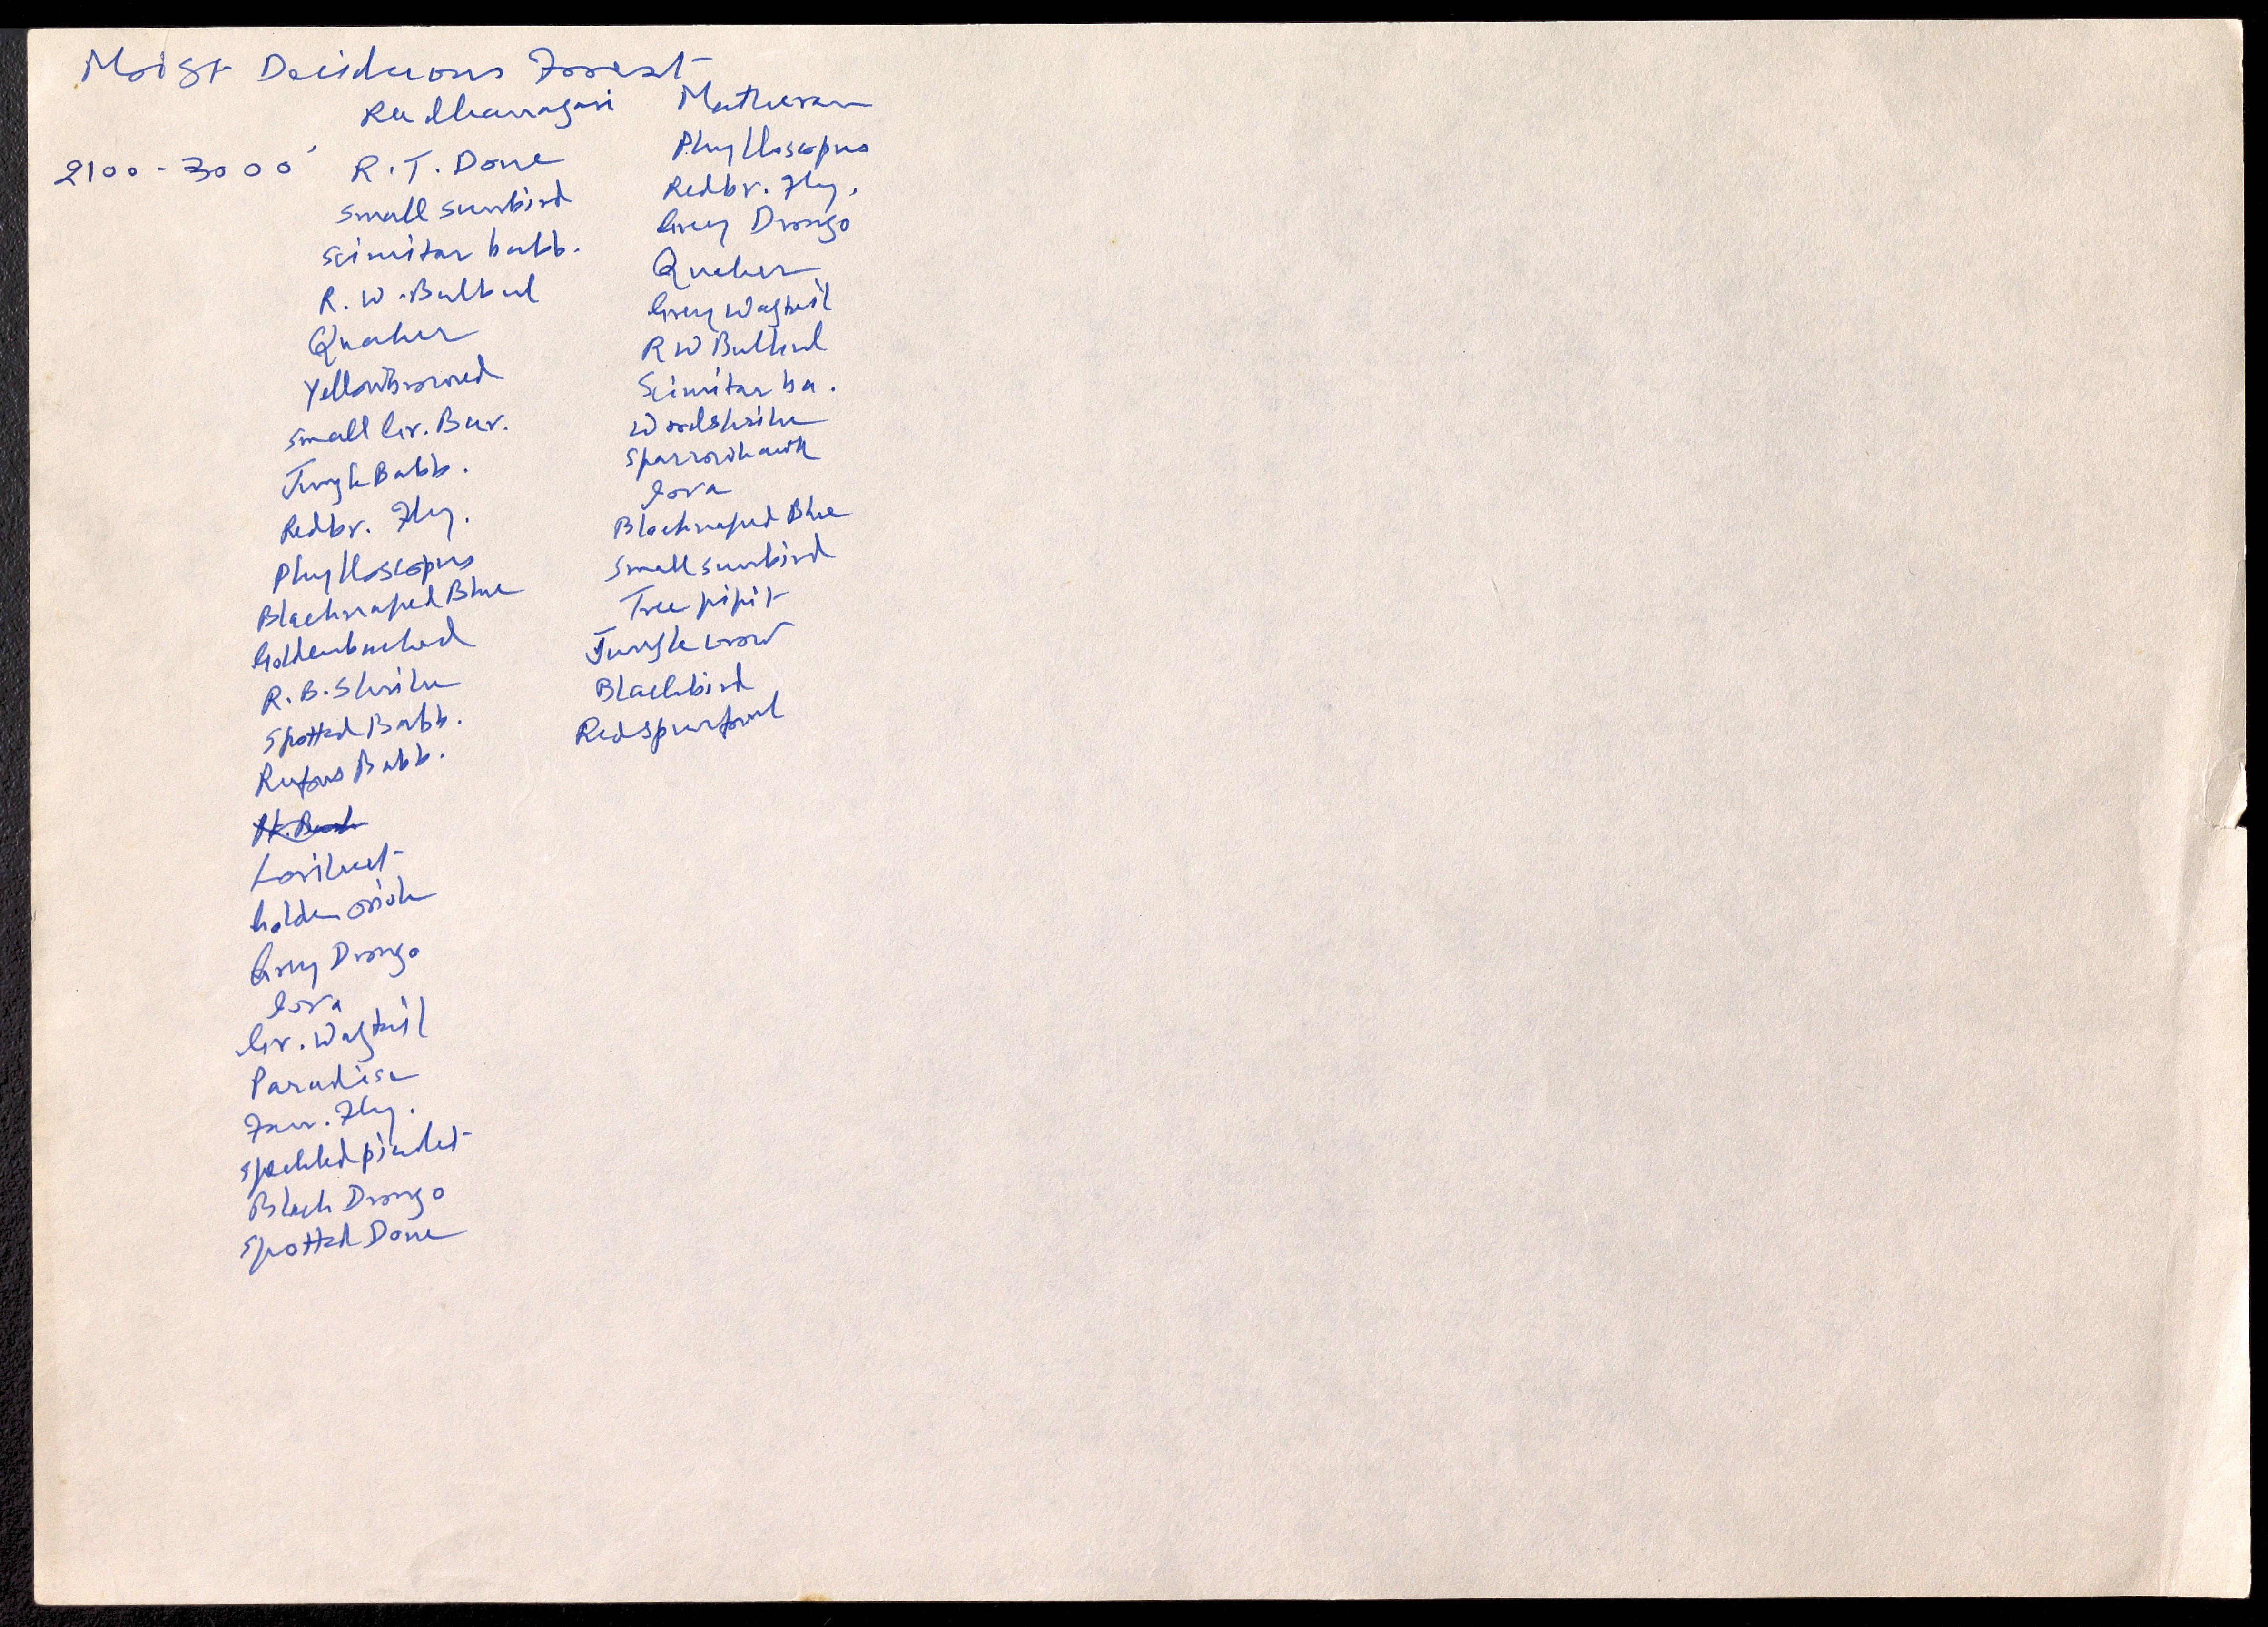 Moist Deciduous Forest
Radhanagari
2100-3000'
R.T. Dove
Small sunbird
Scimitar babb.
R.W. Bulbul
Quaker
Yellowbrowed
Small Gr. Bar.
Jungle Babb.
Redbr. Fly.
Phylloscopus
Blacknaped Blue
Goldenbacked
R.B. Shrike
Spotted Babb.
Rufous Babb.
Lorikeet
Golden oriole
Grey Drongo
Iora
Gr. Wagtail
Paradise
Fly.
Speckled piculet
Black Drongo
Spotted Dove
Matheran
Phylloscopus
Redbr. Fly.
Grey Drongo
Quaker
Grey Wagtail
RW Bulbul
Scimitar ba.
Woodshrike
Sparrowhawk
Iora
Blacknaped Blue
Small sunbird
Tree pipit
Jungle crow
Blackbird
Redspurfowl